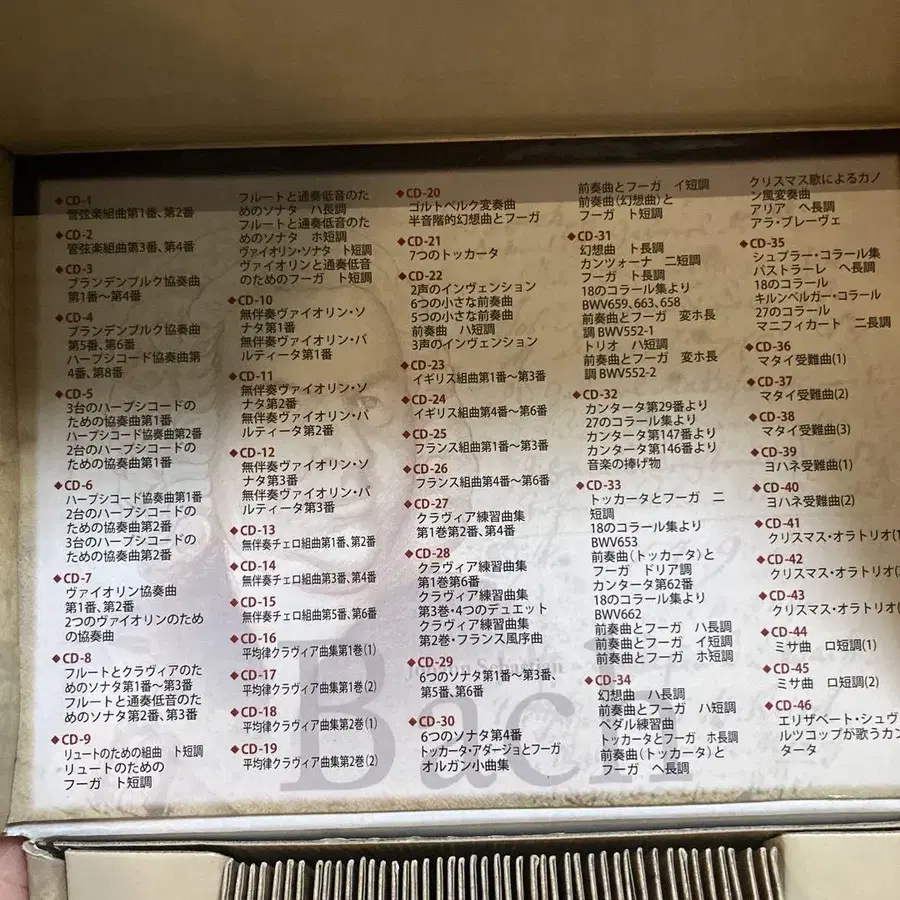 ◆CD-1
管弦楽組曲第1番、第2番
◆CD-2
管弦楽組曲第3番、第4番
◆CD-3
ブランデンブルク協奏曲
第1番〜第4番
◆CD-4
ブランデンブルク協奏曲
第5番、第6番
ハープシコード協奏曲第
4番、第8番
◆CD-5
3台のハープシコードの
ための協奏曲第1番
ハープシコード協奏曲第2番
2台のハープシコードの
ための協奏曲第1番
◆CD-6
ハープシコード協奏曲第1番
2台のハープシコードの
ための協奏曲第2番
3台のハープシコードの
ための協奏曲第2番
◆CD-7
ヴァイオリン協奏曲
第1番、第2番
2つのヴァイオリンのため
の協奏曲
◆CD-8
フルートとクラヴィアのた
めのソナタ第1番〜第3番
フルートと通奏低音のた
めのソナタ第2番、第3番
◆CD-9
リュートのための組曲 ト短調
リュートのための
フーガ ト短調
フルートと通奏低音のた
めのソナタ ハ長調
フルートと通奏低音のた
めのソナタ ホ短調
ヴァイオリン・ソナタ ト短調
ヴァイオリンと通奏低音
のためのフーガ ト短調
◆CD-10
無伴奏ヴァイオリン・ソ
ナタ第1番
無伴奏ヴァイオリン・パ
ルティータ第1番
◆CD-11
無伴奏ヴァイオリン・ソ
ナタ第2番
無伴奏ヴァイオリン・パ
ルティータ第2番
◆CD-12
無伴奏ヴァイオリン・ソ
ナタ第3番
無伴奏ヴァイオリン・パ
ルティータ第3番
◆CD-13
無伴奏チェロ組曲第1番、第2番
◆CD-14
無伴奏チェロ組曲第3番、第4番
◆CD-15
無伴奏チェロ組曲第5番、第6番
◆CD-16
平均律クラヴィア曲集第1巻(1)
◆CD-17
平均律クラヴィア曲集第1巻(2)
◆CD-18
平均律クラヴィア曲集第2巻(1)
◆CD-19
平均律クラヴィア曲集第2巻(2)
◆CD-20
ゴルトベルク変奏曲
半音階的幻想曲とフーガ
◆CD-21
7つのトッカータ
◆CD-22
2声のインヴェンション
6つの小さな前奏曲
5つの小さな前奏曲
前奏曲 ハ短調
3声のインヴェンション
◆CD-23
イギリス組曲第1番〜第3番
◆CD-24
イギリス組曲第4番〜第6番
◆CD-25
フランス組曲第1番〜第3番
◆CD-26
フランス組曲第4番〜第6番
◆CD-27
クラヴィア練習曲集
第1巻第2番、第4番
◆CD-28
クラヴィア練習曲集
第1巻第6番
クラヴィア練習曲集
第3巻・4つのデュエット
クラヴィア練習曲集
第2巻・フランス風序曲
◆CD-29
6つのソナタ第1番〜第3番、
第5番、第6番
◆CD-30
6つのソナタ第4番
トッカータ・アダージョとフーガ
オルガン小曲集
前奏曲とフーガ イ短調
前奏曲(幻想曲)と
フーガ ト短調
◆CD-31
幻想曲 ト長調
カンツォーナ 二短調
フーガ ト長調
18のコラール集より
BWV659、663、658
前奏曲とフーガ 変ホ長
調 BWV552-1
トリオ ハ短調
前奏曲とフーガ 変ホ長
調 BWV552-2
◆CD-32
カンタータ第29番より
27のコラール集より
カンタータ第147番より
カンタータ第146番より
音楽の捧げ物
◆CD-33
トッカータとフーガ 二
短調
18のコラール集より
BWV653
前奏曲(トッカータ)と
フーガ ドリア調
カンタータ第62番
18のコラール集より
BWV662
前奏曲とフーガ ハ長調
前奏曲とフーガ イ短調
前奏曲とフーガ ホ短調
◆CD-34
幻想曲 ハ長調
前奏曲とフーガ ハ短調
ペダル練習曲
トッカータとフーガ ホ長調
前奏曲(トッカータ)と
フーガ ヘ長調
クリスマス歌によるカノ
ン風変奏曲
アリア ヘ長調
アラ・ブレーヴェ
◆CD-35
シュブラー・コラール集
パストラーレ ヘ長調
18のコラール
キルンベルガー・コラール
27のコラール
マニフィカート 二長調
◆CD-36
マタイ受難曲(1)
◆CD-37
マタイ受難曲(2)
◆CD-38
マタイ受難曲(3)
◆CD-39
ヨハネ受難曲(1)
◆CD-40
ヨハネ受難曲(2)
◆CD-41
クリスマス・オラトリオ(1
◆CD-42
クリスマス・オラトリオ(
◆CD-43
クリスマス・オラトリオ(
◆CD-44
ミサ曲 ロ短調(1)
◆CD-45
ミサ曲 ロ短調(2)
◆CD-46
エリザベート・シュヴ
ルツコップが歌うカン
タータ
Johann Sebastian
Bach